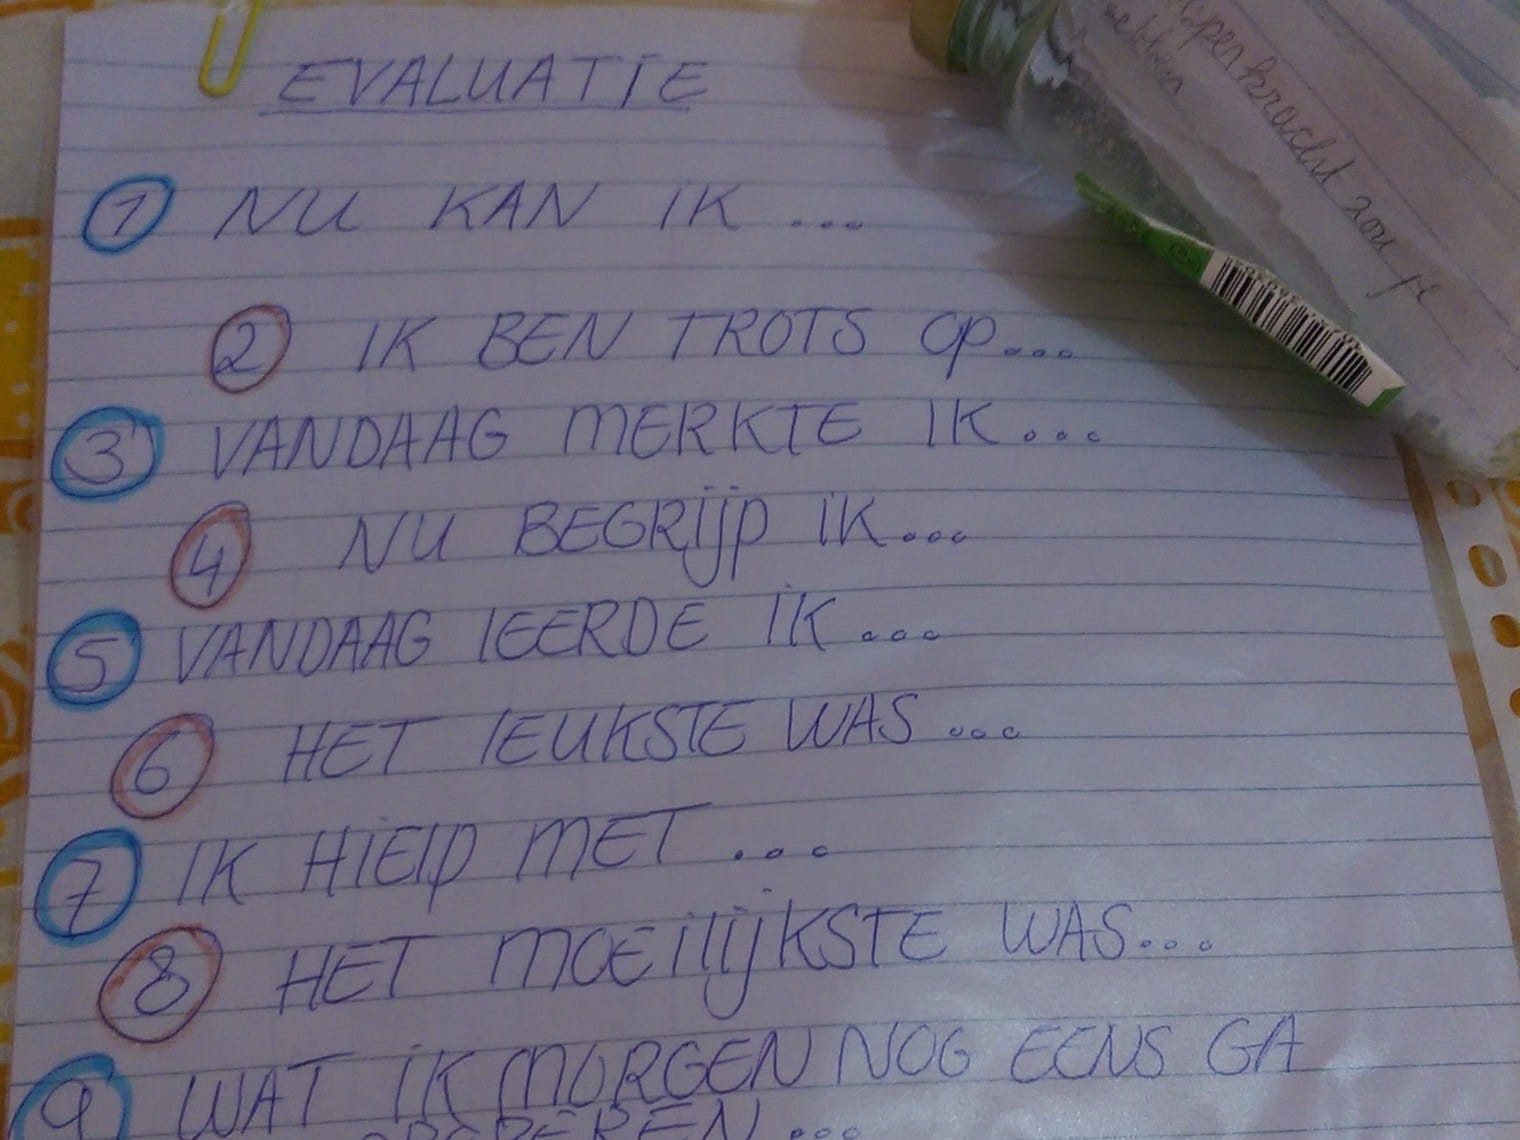 EVALUATIE
1 NU KAN IK ...
2 IK BEN TROTS OP...
3 VANDAAG MERKTE IK...
4 NU BEGRIJP IK...
5 VANDAAG LEERDE IK...
6 HET LEUKSTE WAS...
7 IK HIELP MET ...
8 HET MOEILIJKSTE WAS...
9 WAT IK MORGEN NOG EENS GA
...
perkracht zou je
hebben